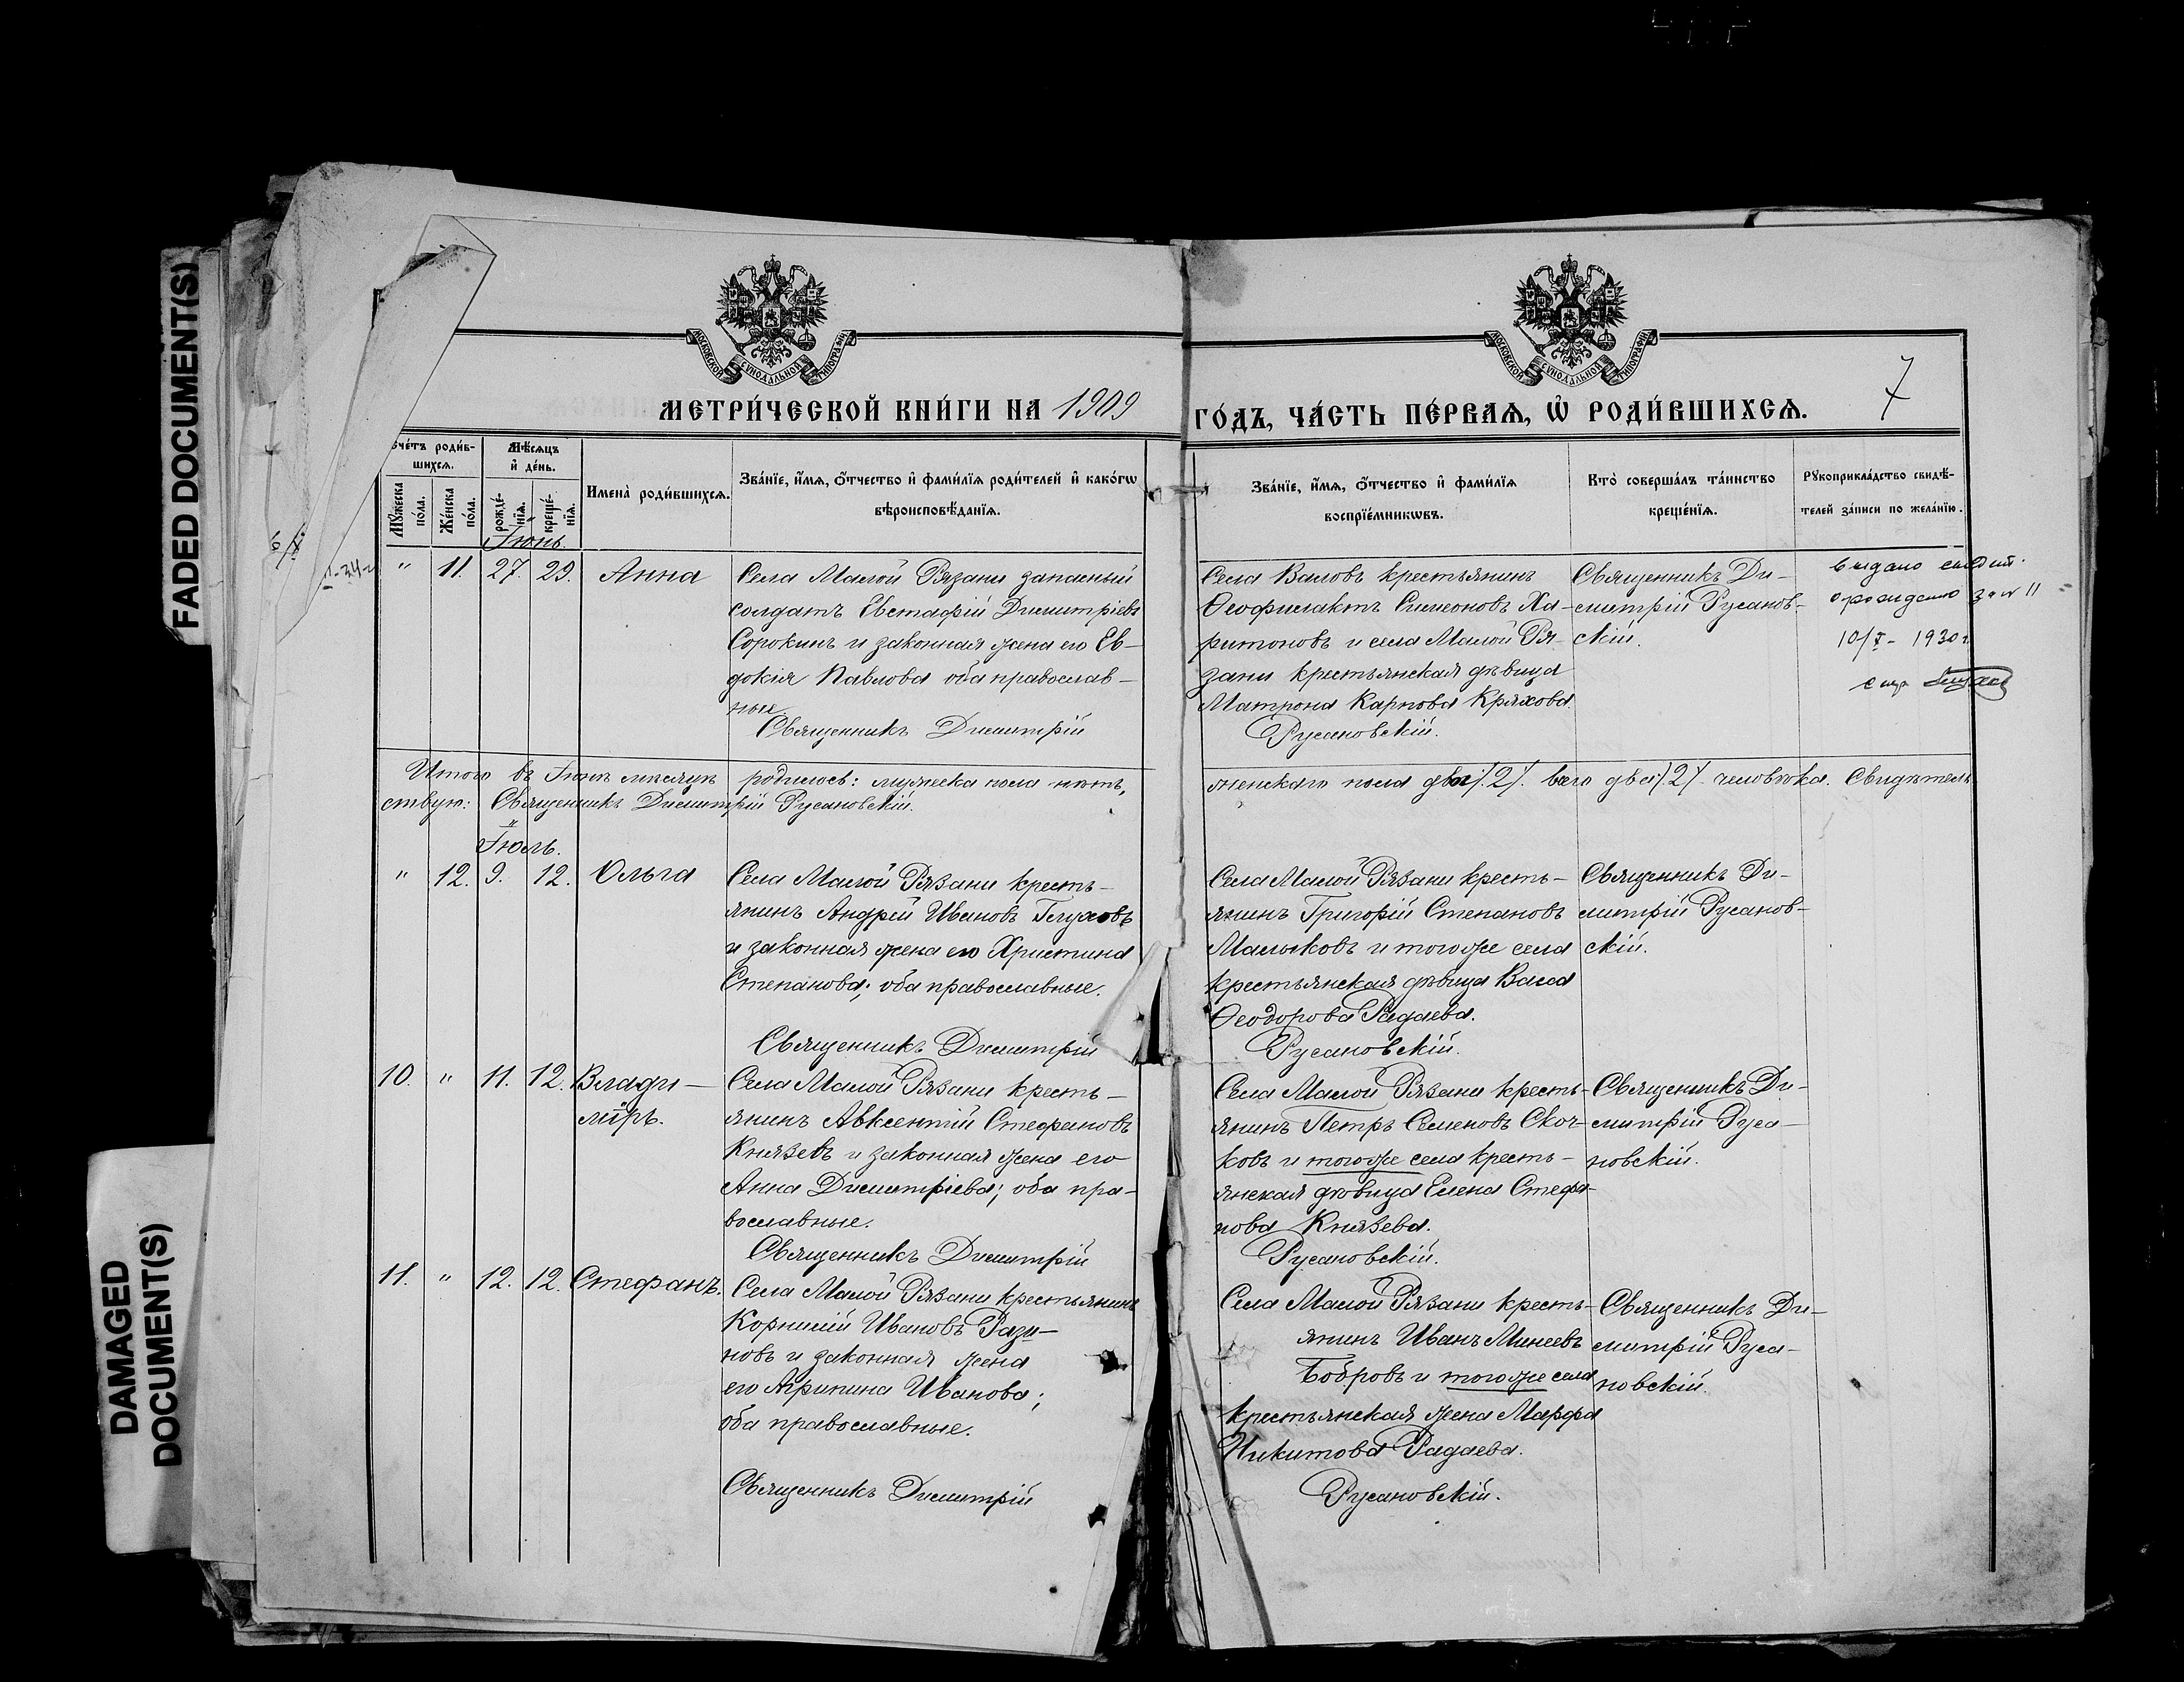 FADED DOCUMENT(S)
DAMAGED
DOCUMENT(S)
МОСКОВСКОЙ СѴНОДАЛЬНОЙ ТИПОГРАФІИ
МОСКОВСКОЙ СѴНОДАЛЬНОЙ ТИПОГРАФІИ
МЕТРИ́ЧЕСКОЙ КНИ́ГИ НА 1909 ГО́ДЪ, ЧА́СТЬ ПЕ́РВАѦ, Ѡ҆ РОДИ́ВШИХСѦ.
7
Сче́тъ роди́в-
шихсѧ.
Мꙋ́жеска по́ла.
Же́нска по́ла.
Мѣ́сѧцъ и҆ де́нь.
рожде́-нїѧ.
креще́-нїѧ.
Имена̀ роди́вшихсѧ.
Зва́нїе, и҆́мѧ, ѻ҆́тчество и҆ фами́лїѧ роди́телей и҆ како́гѡ
вѣроисповѣ́данїѧ.
Зва́нїе, и҆́мѧ, ѻ҆́тчество и҆ фами́лїѧ
воспрїе́мникѡвъ.
Кто̀ соверша́лъ та́инство
креще́нїѧ.
Рꙋкоприкла́дство свидѣ́-
телей за́писи по жела́нїю.
Іюнь.
" 11. 27. 29. Анна
Села Малой Рязани запасный
солдатъ Евстафій Димитріевъ
Сорокинъ и законная жена его Ев-
докія Павлова оба православ-
ные.
Священникъ Димитрій
Села Валовъ крестьянинъ
Ѳеофилактъ Симеоновъ Ха-
ритоновъ и села Малой Ря-
зани крестьянская дѣвица
Матрона Карпова Кряхова.
Русановскій.
Священникъ Ди-
митрій Русанов-
скій.
выдано свидет.
о рождении за № 11
10/I - 1930 г.
Итого въ Іюнѣ мѣсяцѣ родилось: мужеска пола нѣтъ, женскаго пола два /2/. всего два /2/. человѣка. Свидѣтель
ствую: Священникъ Димитрій Русановскій.
Іюль.
" 12. 9. 12. Ольга
Села Малой Рязани кресть-
янинъ Андрей Ивановъ Глуховъ
и законная жена его Христина
Степанова; оба православные.
Священникъ Димитрій
Села Малой Рязани кресть-
янинъ Григорій Степановъ
Малыковъ и того же села
крестьянская дѣвица Васса
Ѳеодорова Радаева.
Русановскій.
Священникъ Ди-
митрій Русанов-
скій.
10. " 11. 12. Влади-
міръ.
Села Малой Рязани кресть-
янинъ Авксентій Стефановъ
Князевъ и законная жена его
Анна Димитріева; оба пра-
вославные.
Священникъ Димитрій
Села Малой Рязани кресть-
янинъ Петръ Семеновъ Скоч-
ковъ и того же села кресть-
янская дѣвица Елена Стефа-
нова Князева.
Русановскій.
Священникъ Ди-
митрій Руса-
новскій.
11. " 12. 12. Стефанъ.
Села Малой Рязани крестьянинъ
Корнилій Ивановъ Рази-
новъ и законная жена
его Агрипина Иванова;
оба православные.
Священникъ Димитрій
Села Малой Рязани кресть-
янинъ Иванъ Минеевъ
Бобровъ и того же села
крестьянская жена Марфа
Никитова Радаева.
Русановскій.
Священникъ Ди-
митрій Руса-
новскій.